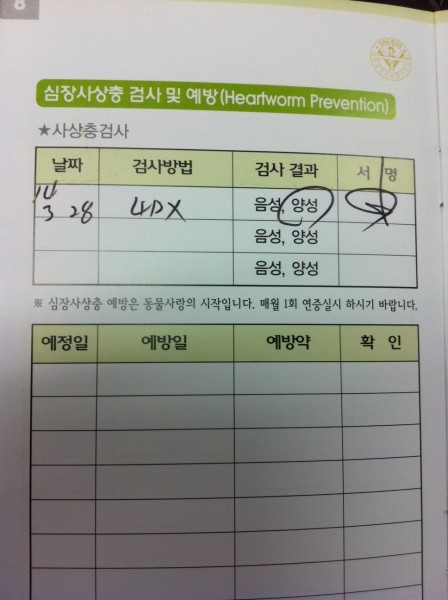 8
심장사상충 검사 및 예방(Heartworm Prevention)
★사상충검사
날짜 검사방법 검사 결과 서 명
14
3 28 4DX 음성, 양성
음성, 양성
음성, 양성
※ 심장사상충 예방은 동물사랑의 시작입니다. 매월 1회 연중실시 하시기 바랍니다.
예정일 예방일 예방약 확 인